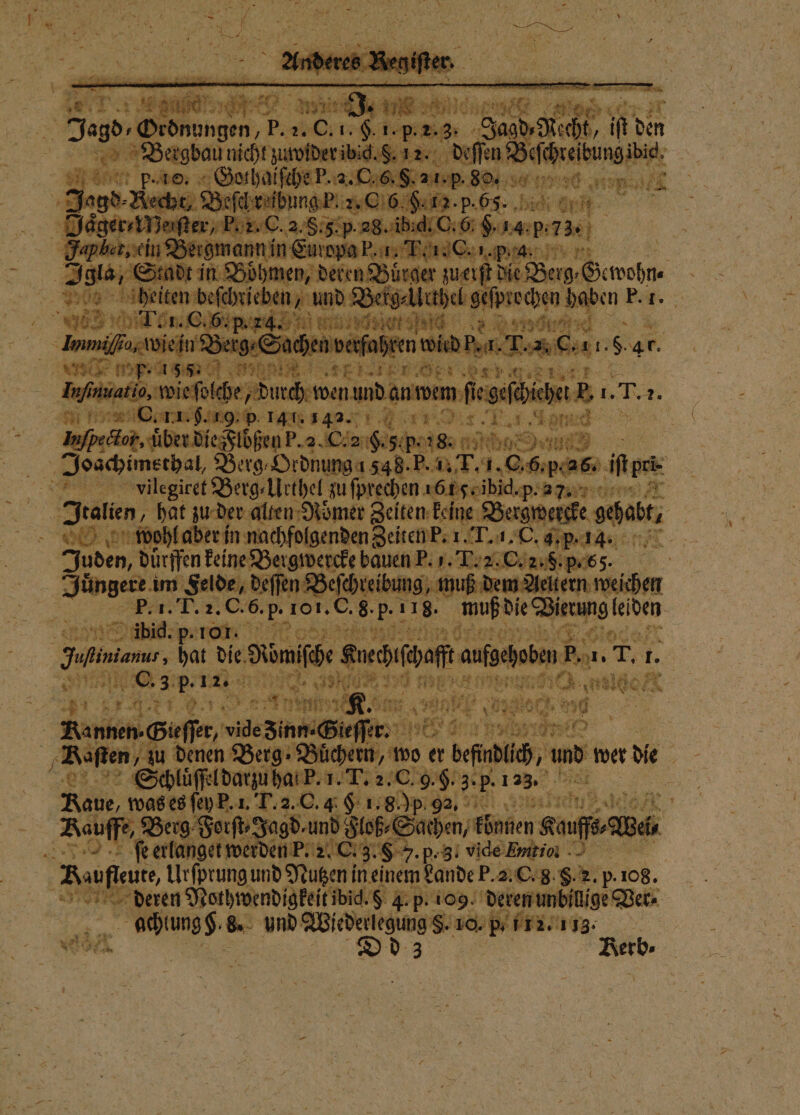 Anderes Register.
J.
Jagd-Ordnungen, P. 2. C. 1. §. 1. p. 2. 3. Jagd-Recht, ist den
Bergbau nicht zuwider ibid. §. 12. dessen Beschreibung ibid.
p. 10. Gothaische P. 2. C. 6. §. 21. p. 80.
Jagd-Recht, Beschreibung P. 2. C 6. §. 12. p. 65.
Jäger-Meister, P. 2. C. 2. §. 5. p. 28. ibid. C. 6. §. 14. p. 73.
Japhet, ein Bergmann in Europa P. 1. T. 1. C. 1. p. 4.
Igla, Stadt in Böhmen, deren Bürger zuerst die Berg-Gewohn-
heiten beschrieben, und Berg-Urthel gesprochen haben P. 1.
T. 1. C. 6. p. 24.
Immissio, wie in Berg-Sachen verfahren wird P. 1. T. 2. C. 11. §. 41.
p. 155.
Insinuatio, wie solche, durch wen und an wem sie geschiehet P. 1. T. 2.
C. 11. §. 19. p. 141. 142.
Inspector, über die Flößen P. 2. C. 2 §. 5. p. 28.
Joachimsthal, Berg-Ordnung 1548. P. 1. T. 1. C. 6. p. 26. ist pri-
vilegiret Berg-Urthel zu sprechen 1615. ibid. p. 27.
Italien, hat zu der alten Römer Zeiten keine Bergwercke gehabt,
wohl aber in nachfolgenden Zeiten P. 1. T. 1. C. 4. p. 14.
Juden, dürffen keine Bergwercke bauen P. 1. T. 2. C. 2. §. p. 65.
Jüngere im Felde, dessen Beschreibung, muß dem Aeltern weichen
P. 1. T. 2. C. 6. p. 101. C. 8. p. 118. muß die Vierung leiden
ibid. p. 101.
Justinianus, hat die Römische Knechtschafft aufgehoben P. 1. T. 1.
C. 3 p. 12.
K.
Kannen-Giesser, vide Zinn-Giesser.
Kasten, zu denen Berg-Büchern, wo er befindlich, und wer die
Schlüssel darzu hat P. 1. T. 2. C. 9. §. 3. p. 123.
Kaue, was es sey P. 1. T. 2. C. 4. § 1. 8.) p. 92.
Kauffe, Berg-Forst-Jagd-und Floß-Sachen, können Kauffs-Wei-
se erlanget werden P. 2. C. 3. § 7. p. 3. vide Emtio.
Kaufleute, Ursprung und Nutzen in einem Lande P. 2. C. 8. §. 2. p. 108.
deren Nothwendigkeit ibid. § 4. p. 109. deren unbillige Ver-
achtung §. 8. und Wiederlegung §. 10. p. 112. 113.
Dd 3 Kerb-